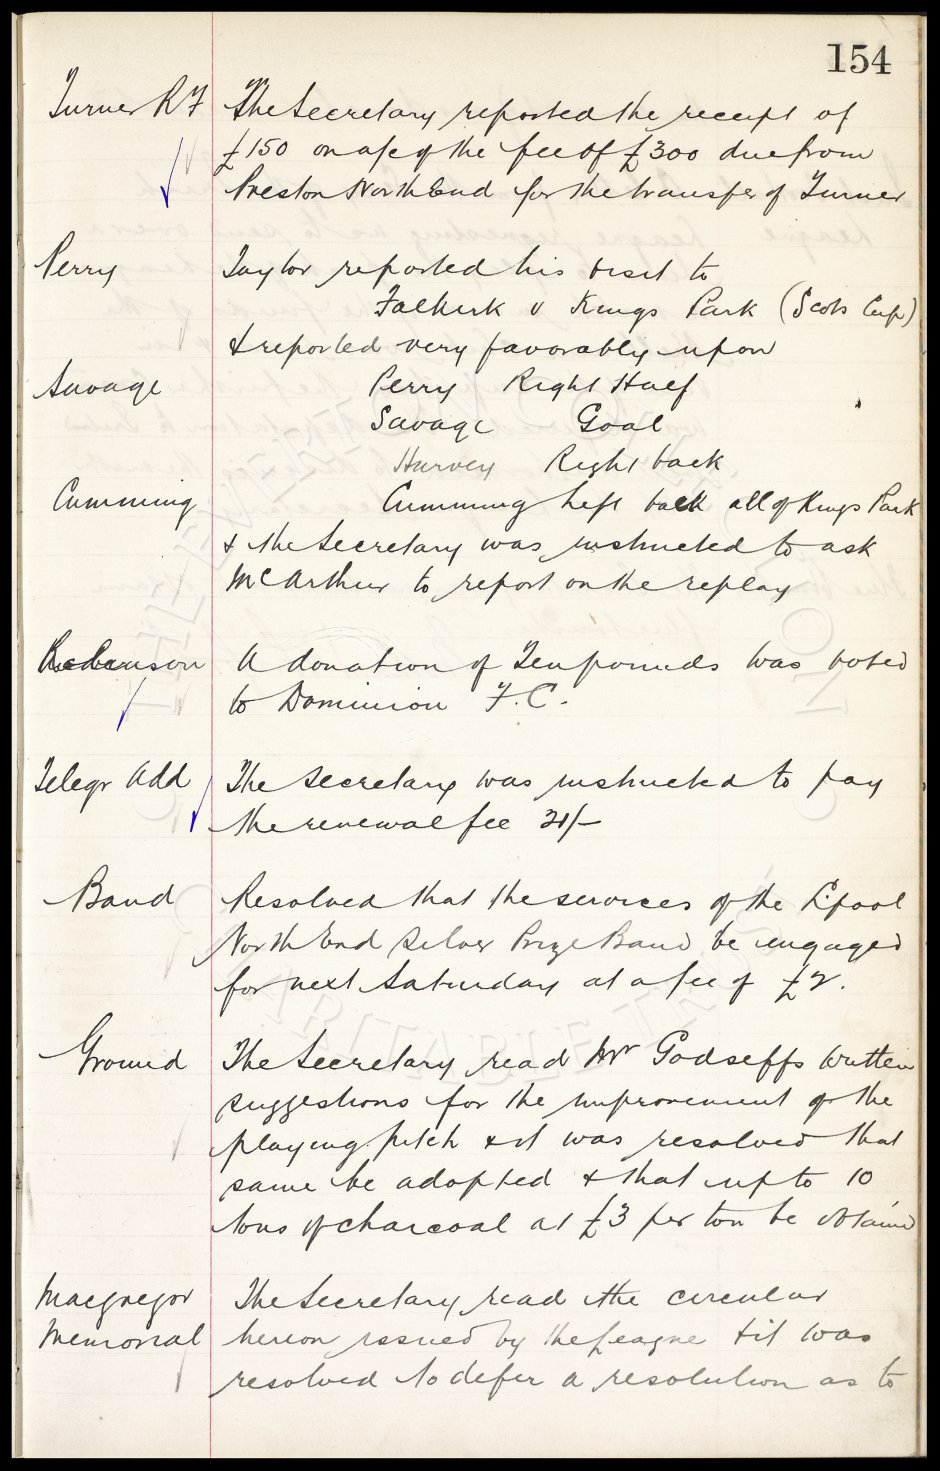 154
Turner R F The Secretary reported the receipt of
£150 on a/c of the fee of £300 due from
Preston North End for the transfer of Turner
Perry Taylor reported his visit to
Falkirk v Kings Park (Scots Cup)
& reported very favorably upon
Savage Perry Right Half
Savage Goal
Harvey Right back
Cumming Cumming Left back all of Kings Park
& the Secretary was instructed to ask
McArthur to report on the replay
A donation of Ten pounds was voted
to Dominion F.C.
Telegr Add The Secretary was instructed to pay
the renewal fee
Band Resolved that the services of the L'pool
North End Silver Prize Band be engaged
for next Saturday at a fee of £2.
Ground The Secretary read Mr Godseffs written
suggestions for the improvement of the
playing pitch & it was resolved that
same be adopted & that up to 10
tons of charcoal at £3 per ton be obtained
Macgregor The Secretary read the circular
Memorial hereon issued by the League & it was
resolved to defer a resolution as to